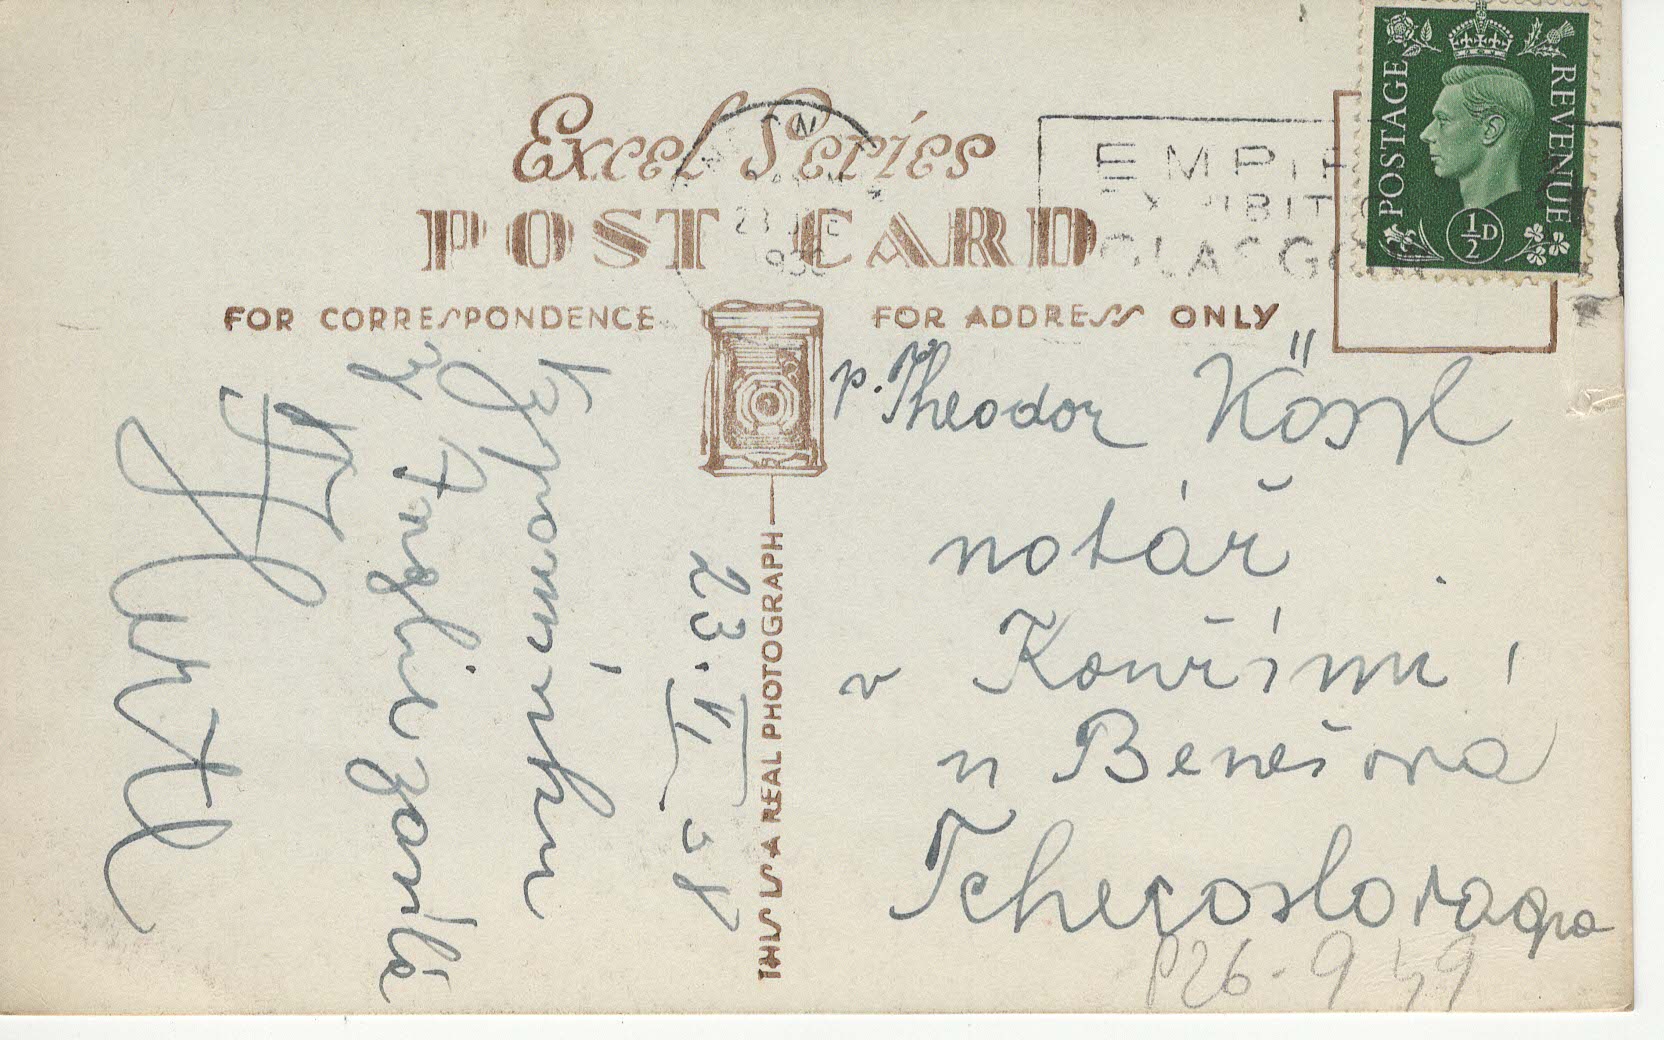 Excel Series
POST CARD
FOR CORRESPONDENCE
FOR ADDRESS ONLY
THIS IS A REAL PHOTOGRAPH
POSTAGE
REVENUE
½D
EMPIRE
EXHIBITION
GLASGOW
23 JNE
193
23. VI. 38
Vzpomínku
z Anglie zasílá
p. Theodor Kössl
notář
v Kouřimi,
u Benešova
Tchecoslovaqua
P26-9 49